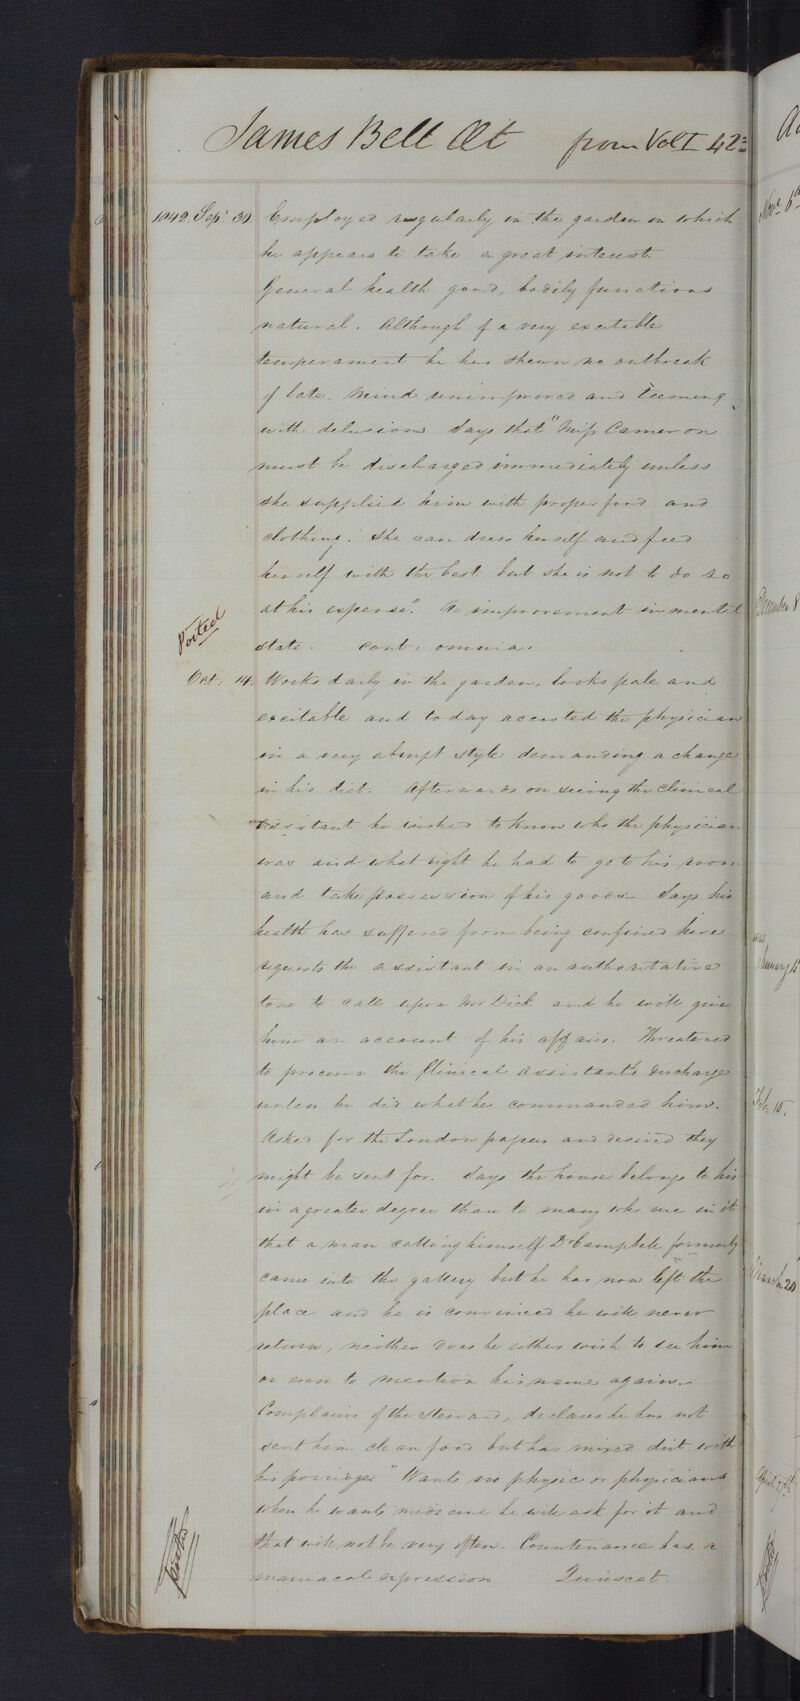 James Bell Æt from Vol I 423
1842 Sep' 30 Employed regularly in the garden in which
he appears to take a great interest.
General health good, bodily functions
natural. Although of a very excitable
temperament he has shewn no outbreak
of late. Mind unimproved and teeming
with delusions. Says that "Miss Cameron
must be discharged immediately unless
she supplied him with proper food and
clothing. She can dress herself and feed
herself with the best but she is not to do so
at his expense". No improvement in mental
Posted
state. Cont: omnia.
Oct: 14. Works daily in the garden, looks pale and
excitable and today accosted the physician
in a very abrupt style demanding a change
in his diet. Afterwards on seeing the Clinical
assistant he wished to know who the physician
was and what right he had to go to his room
and take possession of his goods. Says his
health has suffered from being confined here
requests the assistant in an authoritative
tone to call upon Mr Dick and he will give
him an account of his affairs. Threatened
to procure the Clinical Assistant's discharge
unless he did what he commanded him.
Asked for the London papers and desired they
might be sent for. Says the house belongs to him
in a greater degree than to many who are in it
that a man calling himself Dr Campbell formerly
came into the gallery but he has now left the
place and he is convinced he will never
return, neither does he either wish to see him
or even to mention his name again.
Complains of the Steward, declares he has not
sent him clean food but has mixed dirt with
his porridge" Wants no physic or physicians
when he wants medicine he will ask for it and
that will not be very often. Countenance has a
maniacal expression Quiescat.
Posted
Nov. 6th
December 8
January 12
Feb. 10.
March 20
April 27th